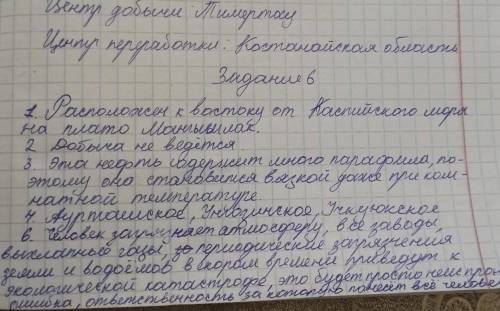 Центр добычи Тимертасу
Центр переработки: Костанайская область
Задание 6
1. Расположен к востоку от Каспийского моря
на плато Мангышлак.
2 Добыча не ведётся.
3. Эта нефть содержит много парафина, по-
этому она становится вязкой даже при ком-
натной температуре.
4. Аурташское, Учкуюкское
6. Человек загрязняет атмосферу, все заводы,
выхлопные газы, периодические загрязнения
земли и водоёмов в скором времени приведут к
экологической катастрофе, это будет просто
ошибка, ответственность за которую понесёт всё